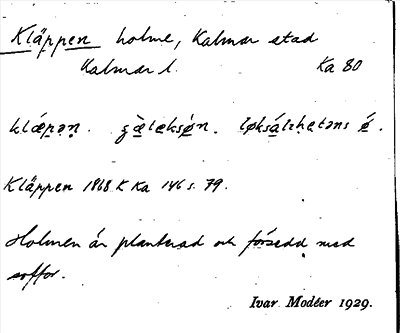 Kläppen holme, Kalmar stad
Kalmar l. Ka 80
klæpən. gæ̀læksǿn. löksáləhetəns ǿ.
Kläppen 1868 K Ka 146 s. 79.
Holmen är planterad och försedd med
soffor.
Ivar Modéer 1929.